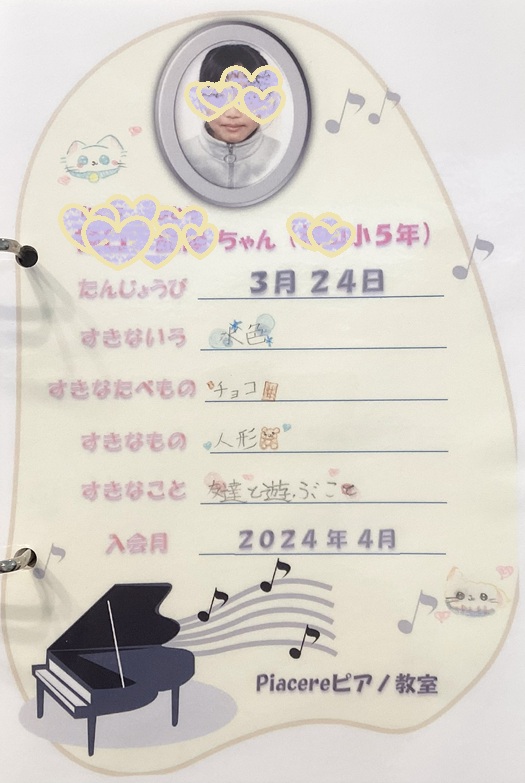 ちゃん（小5年）
たんじょうび 3月24日
すきないろ 水色
すきなたべもの チョコ
すきなもの 人形
すきなこと 友達と遊ぶこと
入会月 2024年4月
Piacereピアノ教室